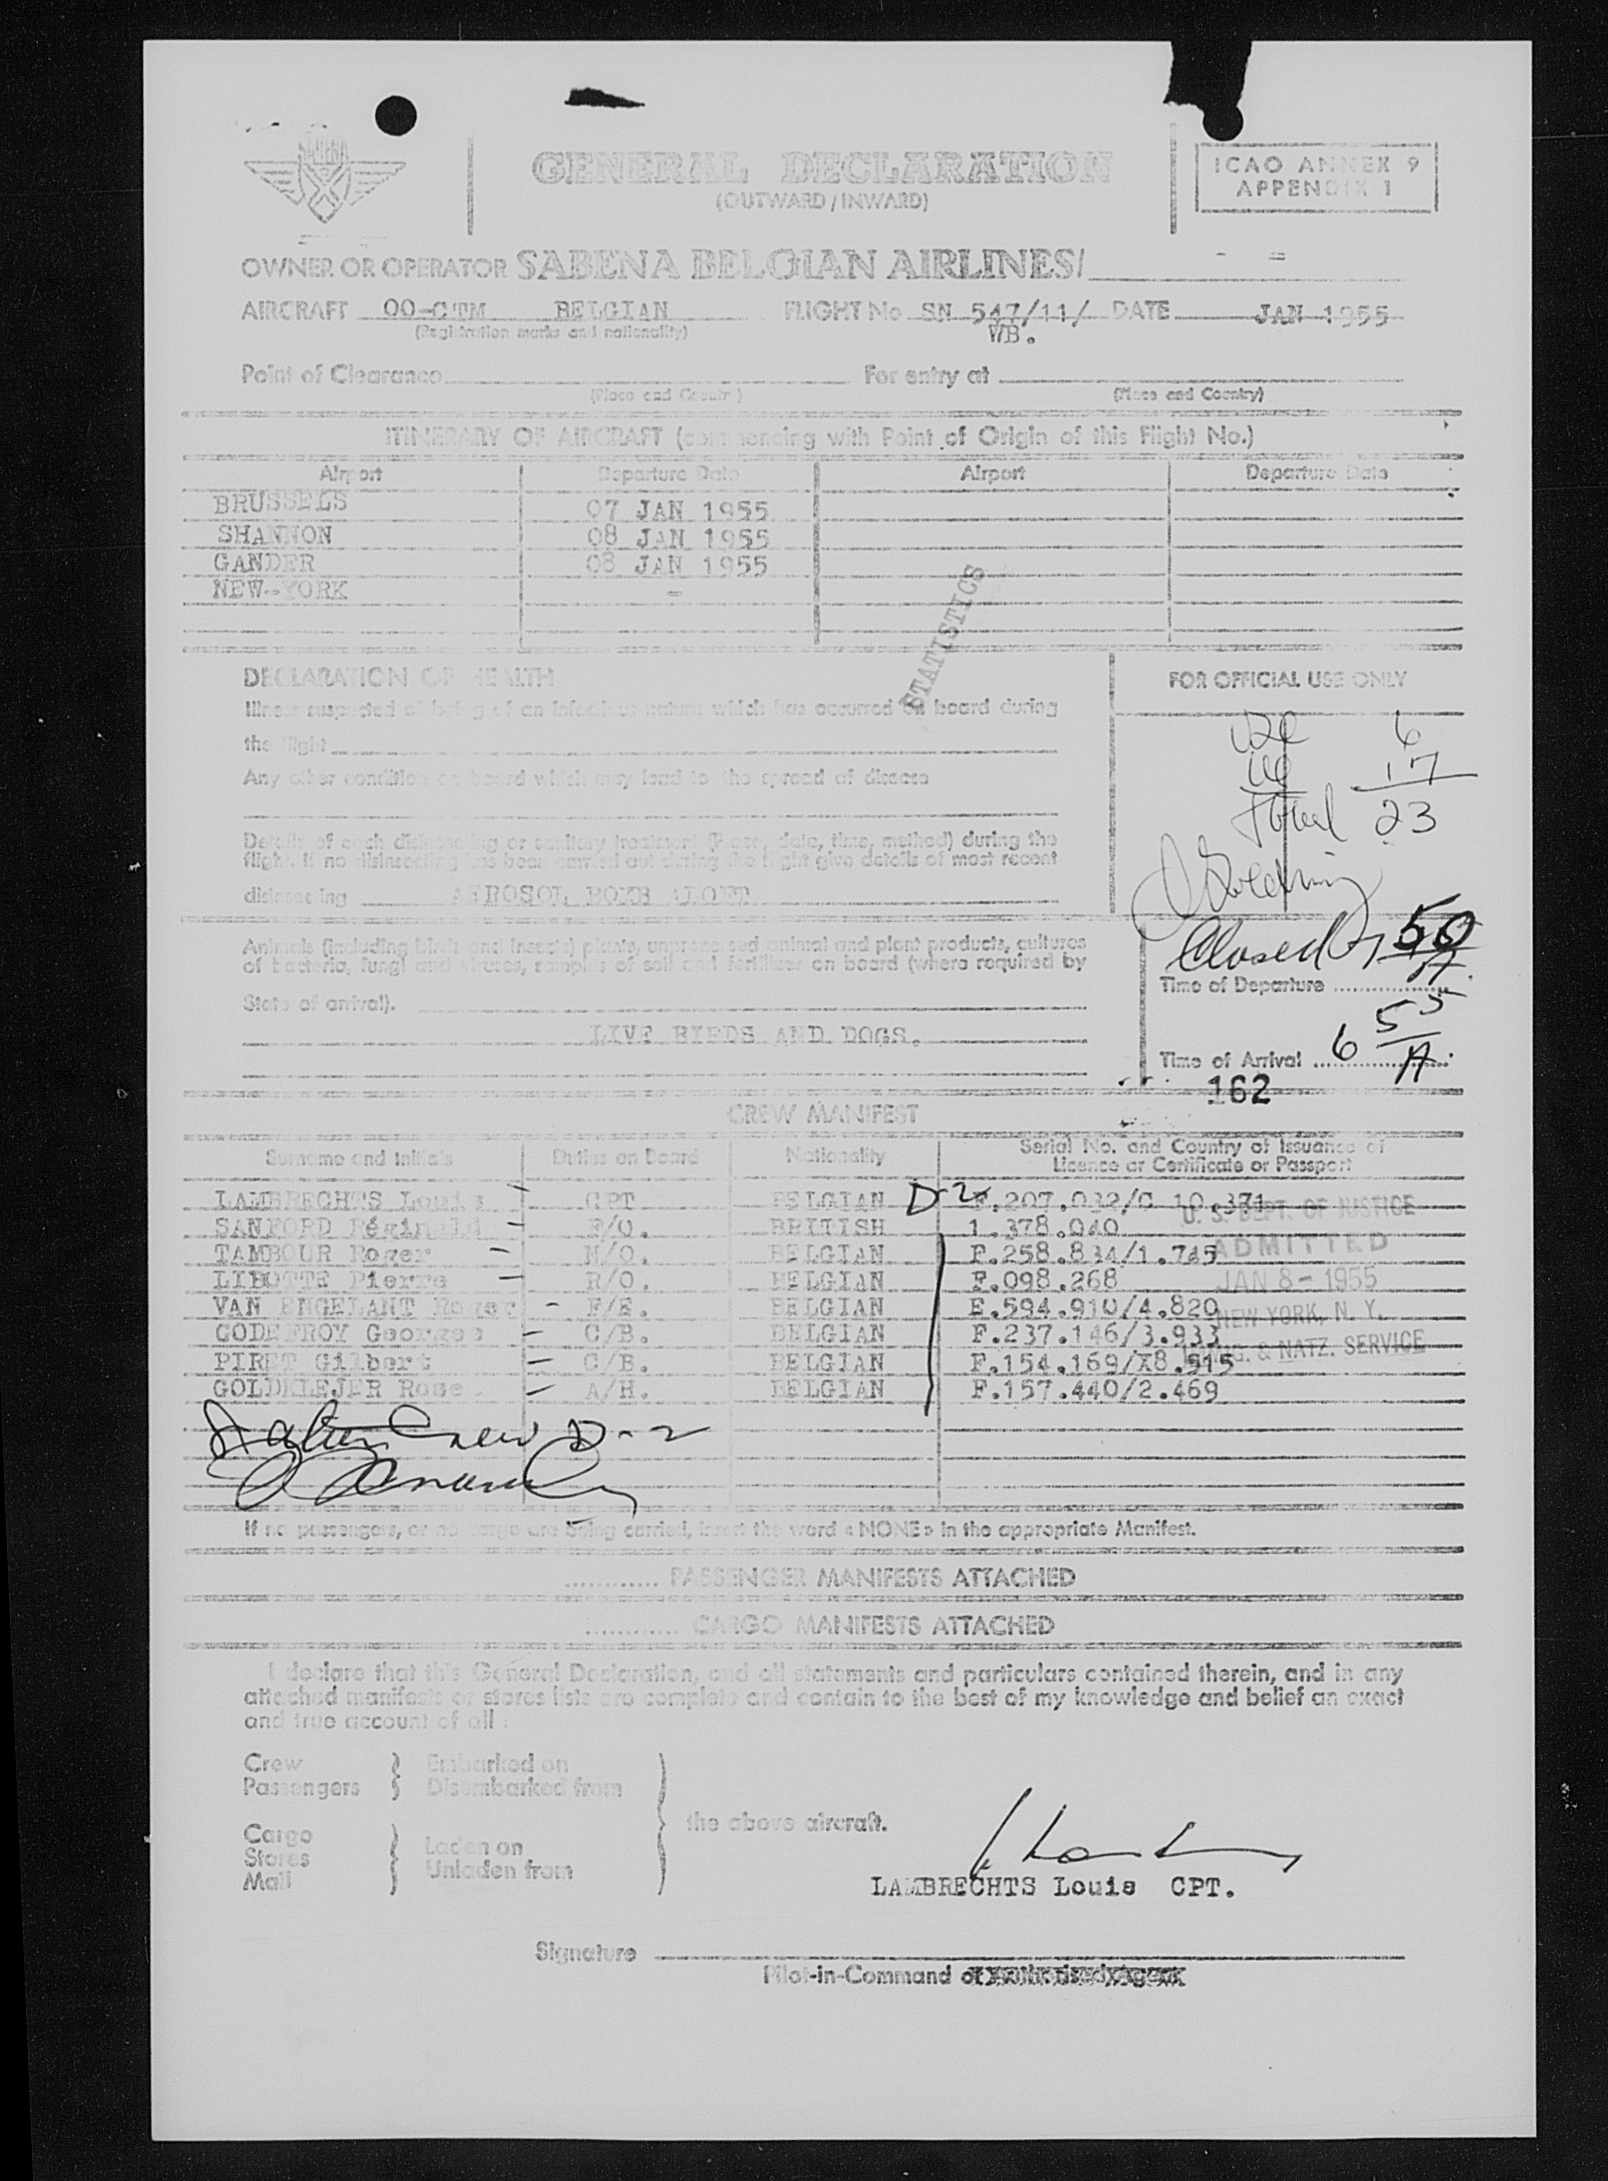 SABENA
GENERAL DECLARATION
(OUTWARD / INWARD)
ICAO ANNEX 9
APPENDIX 1
OWNER OR OPERATOR SABENA BELGIAN AIRLINES/ - =
AIRCRAFT OO-CTM BELGIAN FLIGHT No SN 547/11/ DATE JAN 1955
(Registration marks and nationality) WB.
Point of Clearance For entry at
(Place and Country) (Place and Country)
ITINERARY OF AIRCRAFT (commencing with Point of Origin of this Flight No.)
Airport Departure Date Airport Departure Date
BRUSSELS 07 JAN 1955
SHANNON 08 JAN 1955
GANDER 08 JAN 1955
NEW-YORK -
STATISTICS
DECLARATION OF HEALTH
FOR OFFICIAL USE ONLY
Illness suspected of being of an infectious nature which has occurred on board during
the flight
Any other condition on board which may lead to the spread of disease
Details of each disinsecting or sanitary treatment (Place, date, time, method) during the
flight. If no disinsecting has been carried out during the flight give details of most recent
disinsecting AEROSOL BOMB
6
17
Total 23
Closed 7 50/A
Animals (including birds and insects) plants, unprocessed animal and plant products, cultures
of bacteria, fungi and viruses, samples of soil and fertilizer on board (where required by
State of arrival).
Time of Departure
LIVE BIRDS AND DOGS.
Time of Arrival 6 55/A
162
CREW MANIFEST
Surname and Initials Duties on Board Nationality Serial No. and Country of Issuance of
Licence or Certificate or Passport
LAMBRECHTS Louis - CPT BELGIAN D-2 F.207.032/C 10.371
SANFORD Réginald - F/O. BRITISH 1.378.040
TAMBOUR Roger - N/O. BELGIAN F.258.834/1.745
LIBOTTE Pierre - R/O. BELGIAN F.098.268
VAN ENGELANT Roger - F/E. BELGIAN E.594.910/4.820
GODEFROY Georges - C/B. BELGIAN F.237.146/3.933
PIRET Gilbert - C/B. BELGIAN F.154.169/X8.515
GOLDELEJER Rose. - A/H. BELGIAN F.157.440/2.469
U. S. DEPT. OF JUSTICE
ADMITTED
JAN 8 - 1955
NEW YORK, N. Y.
IMMIG. & NATZ. SERVICE
Crew D-2
If no passengers, or no cargo are being carried, insert the word « NONE » in the appropriate Manifest.
............ PASSENGER MANIFESTS ATTACHED
............ CARGO MANIFESTS ATTACHED
I declare that this General Declaration, and all statements and particulars contained therein, and in any
attached manifests or stores lists are complete and contain to the best of my knowledge and belief an exact
and true account of all :
Crew Embarked on
Passengers Disembarked from
the above aircraft.
Cargo
Stores Laden on
Mail Unladen from
LAMBRECHTS Louis CPT.
Signature
Pilot-in-Command or Authorised Agent